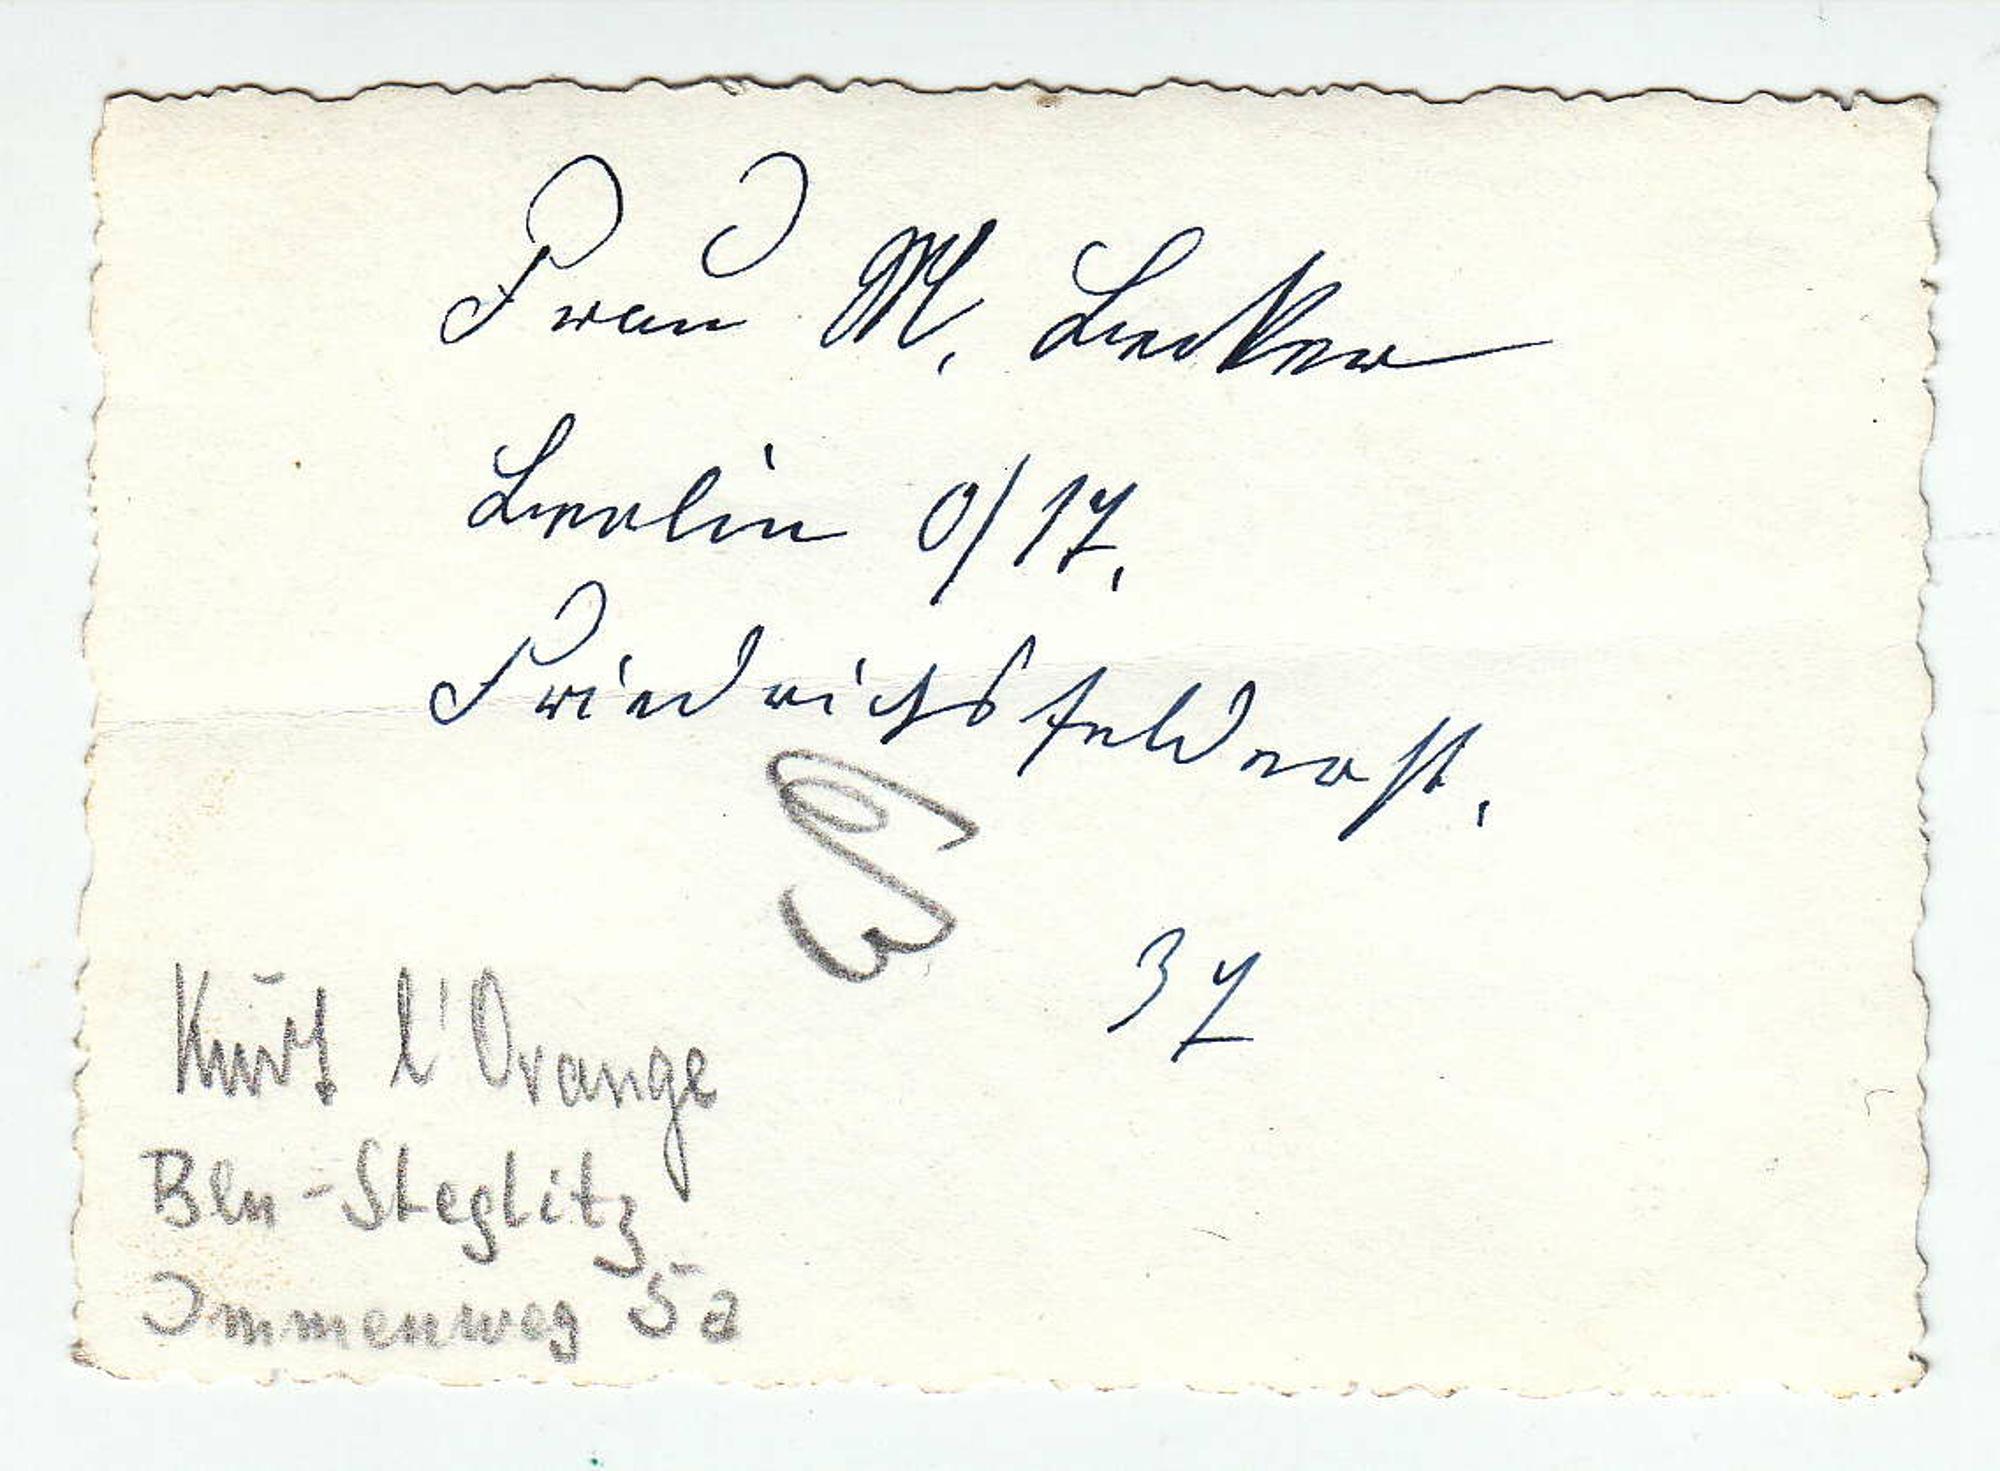 Frau M. Becker
Berlin O/17.
Friedrichsfelderst.
37
Kurt l'Orange
Bln-Steglitz
Immenweg 5a